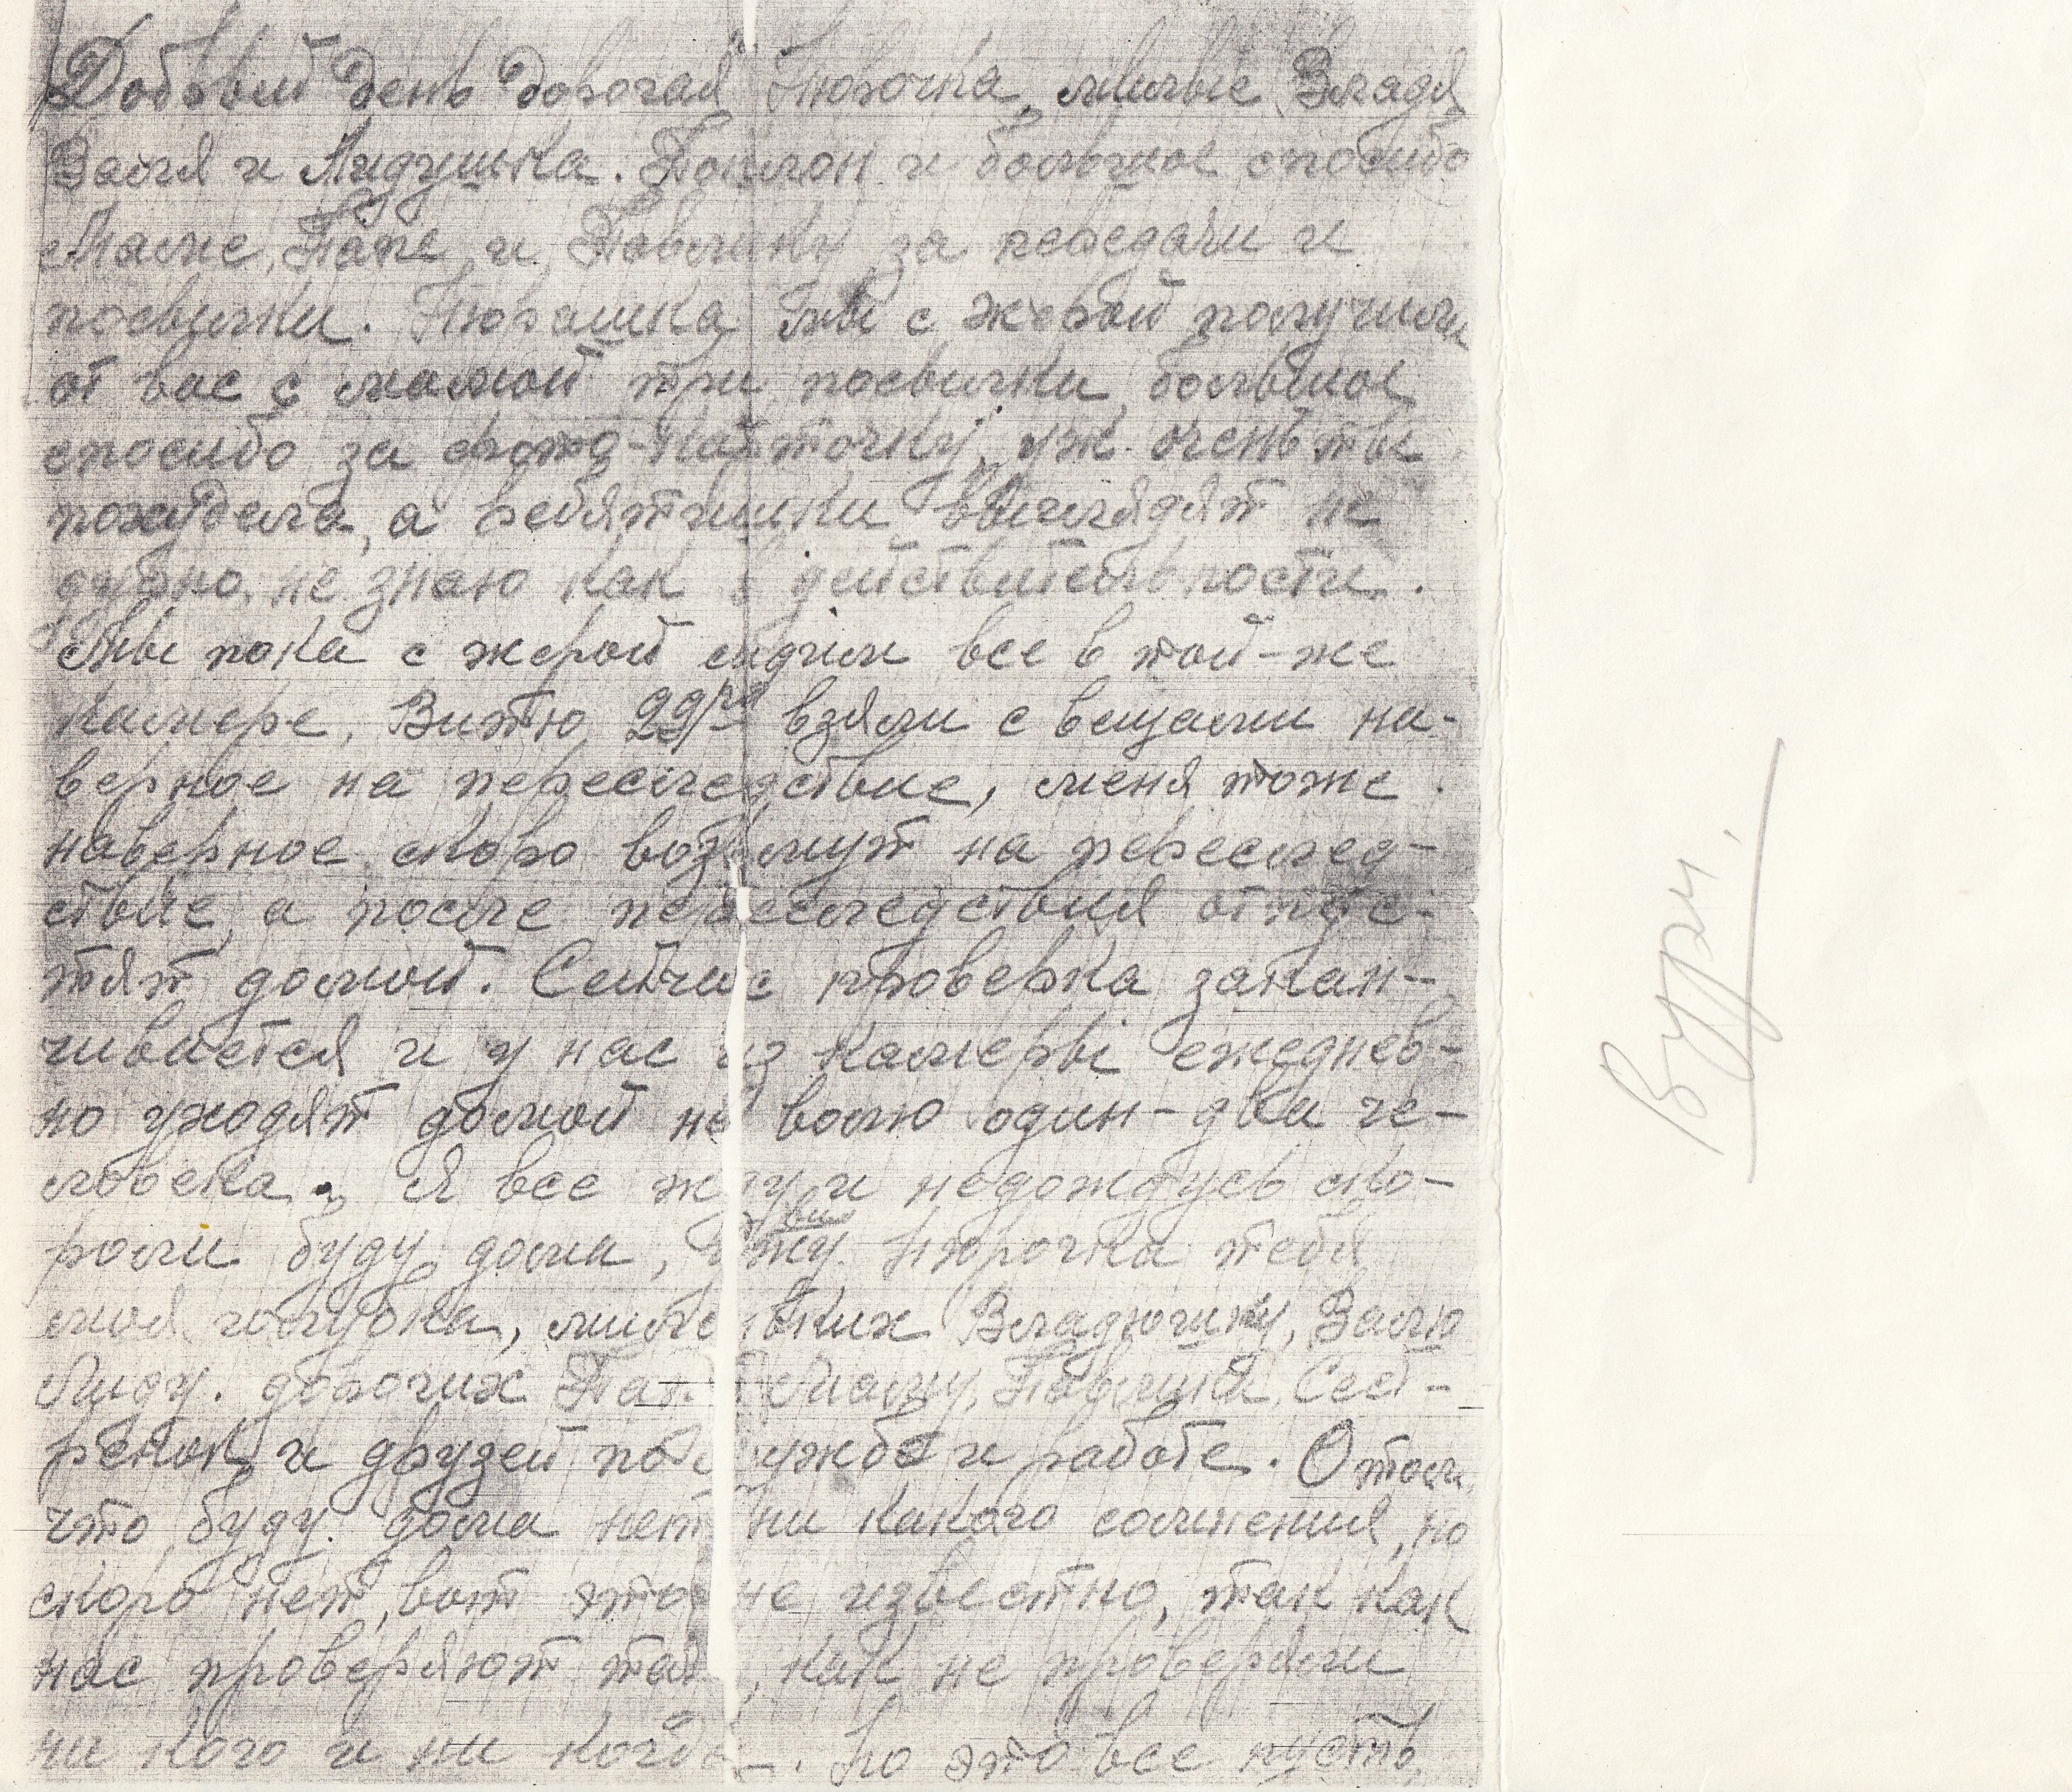 Добрый день дорогая Нюрочка, милые Владя,
Валя и Лидушка. Поклон и большое спосибо
Маме, Папе и Павлику за передачи и
посылки. Нюрашка мы с жерой получили
от вас с мамой три посылки, большое
спосибо за фото-карточку, уж очень ты
похудела, а ребятишки выглядят не
дурно, не знаю как в действительности.
Мы пока с жерой сидим все в той-же
камере, Витю 22/ взяли с вещами на-
верное на переследствие, меня тоже
наверное скоро возьмут на переслед-
ствие, а после переследствия отпус-
тят домой. Сейчас проверка закан-
чивается и у нас из камеры ежеднев-
но уходят домой на волю один-два че-
ловека. Я все жду и недождусь ско-
роли буду дома, увижу Нюрочка тебя
моя голубка, миленьких Владюшку, Валю
Лиду. дорогих Папу Маму, Павлика, Сест-
ренок и друзей по службе и работе. О том
что буду дома нет ни какого сомнения, но
скоро нет, вот это не известно, так как
нас проверяют так, как не проверяли
ни кого и ни когда. Но это все пусть
Вурн.